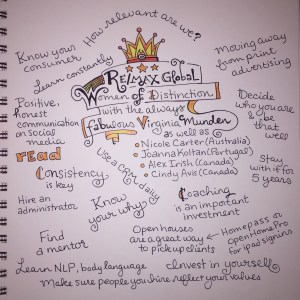 How relevant are we?
Know your
consumer
Moving away
from print
advertising
Learn constantly
RE/MAX Global
Women of Distinction
with the always
fabulous Virginia Munden
as well as
• Nicole Carter (Australia)
• Joanna Koltan (Portugal)
• Alex Irish (Canada)
• Cindy Avis (Canada)
Positive,
honest
communication
on Social
media
Decide
who you are
& be
that well
read
Consistency
is key
Use a CRM daily
Stay
with it for
5 years
Hire an
administrator
Know
your why
Coaching
is an important
investment
Find
a mentor
Open houses
are a great way
to pick up clients
Homepass or
open Home Pro
for ipad signins
Learn NLP, body language
Invest in yourself
Make sure people you hire reflect your values